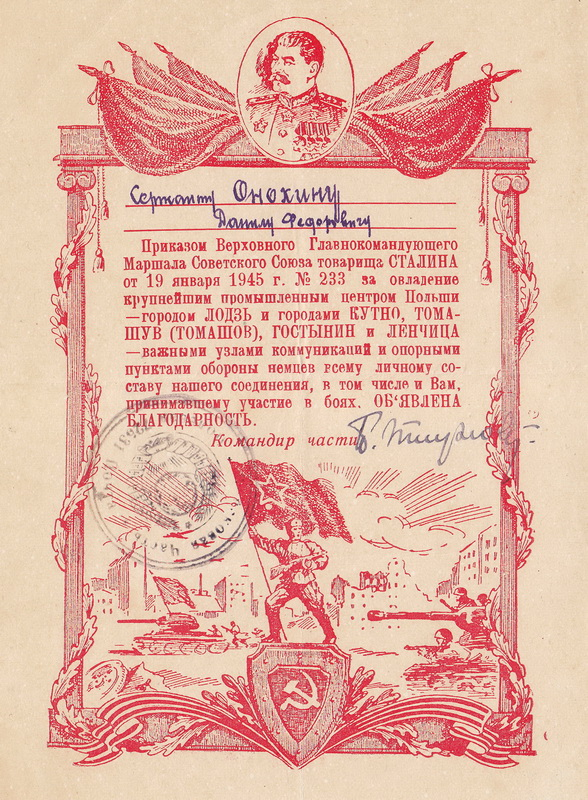 Сержанту Онохину
Данилу Федоровичу
Приказом Верховного Главнокомандующего
Маршала Советского Союза товарища СТАЛИНА
от 19 января 1945 г. № 233 за овладение
крупнейшим промышленным центром Польши
—городом ЛОДЗЬ и городами КУТНО, ТОМА-
ШУВ (ТОМАШОВ), ГОСТЫНИН и ЛЕНЧИЦА
—важными узлами коммуникаций и опорными
пунктами обороны немцев всему личному со-
ставу нашего соединения, в том числе и Вам,
принимавшему участие в боях, ОБ‘ЯВЛЕНА
БЛАГОДАРНОСТЬ.
Командир части
часть